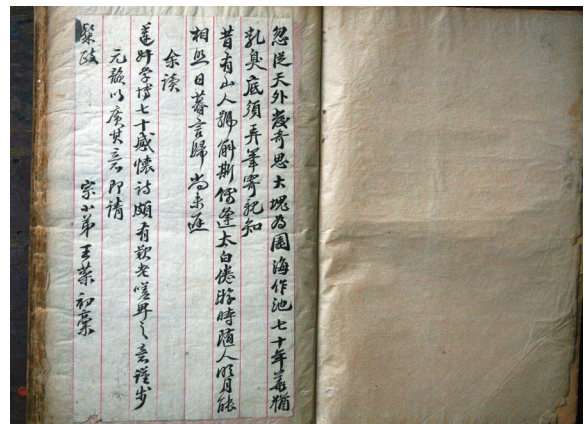 忽從天外發奇思大塊為園海作池七十年華猶
乳臭底須弄筆寄親知
昔有山人號斛斯儻逢太白倦游時隨人明月能
相照日暮言歸尚未遲
余讀
蓮舫學博七十感懷詩頗有歎老嗟卑之意謹步
元韻以廣其意即請
粲政
宗小弟王棻初稾